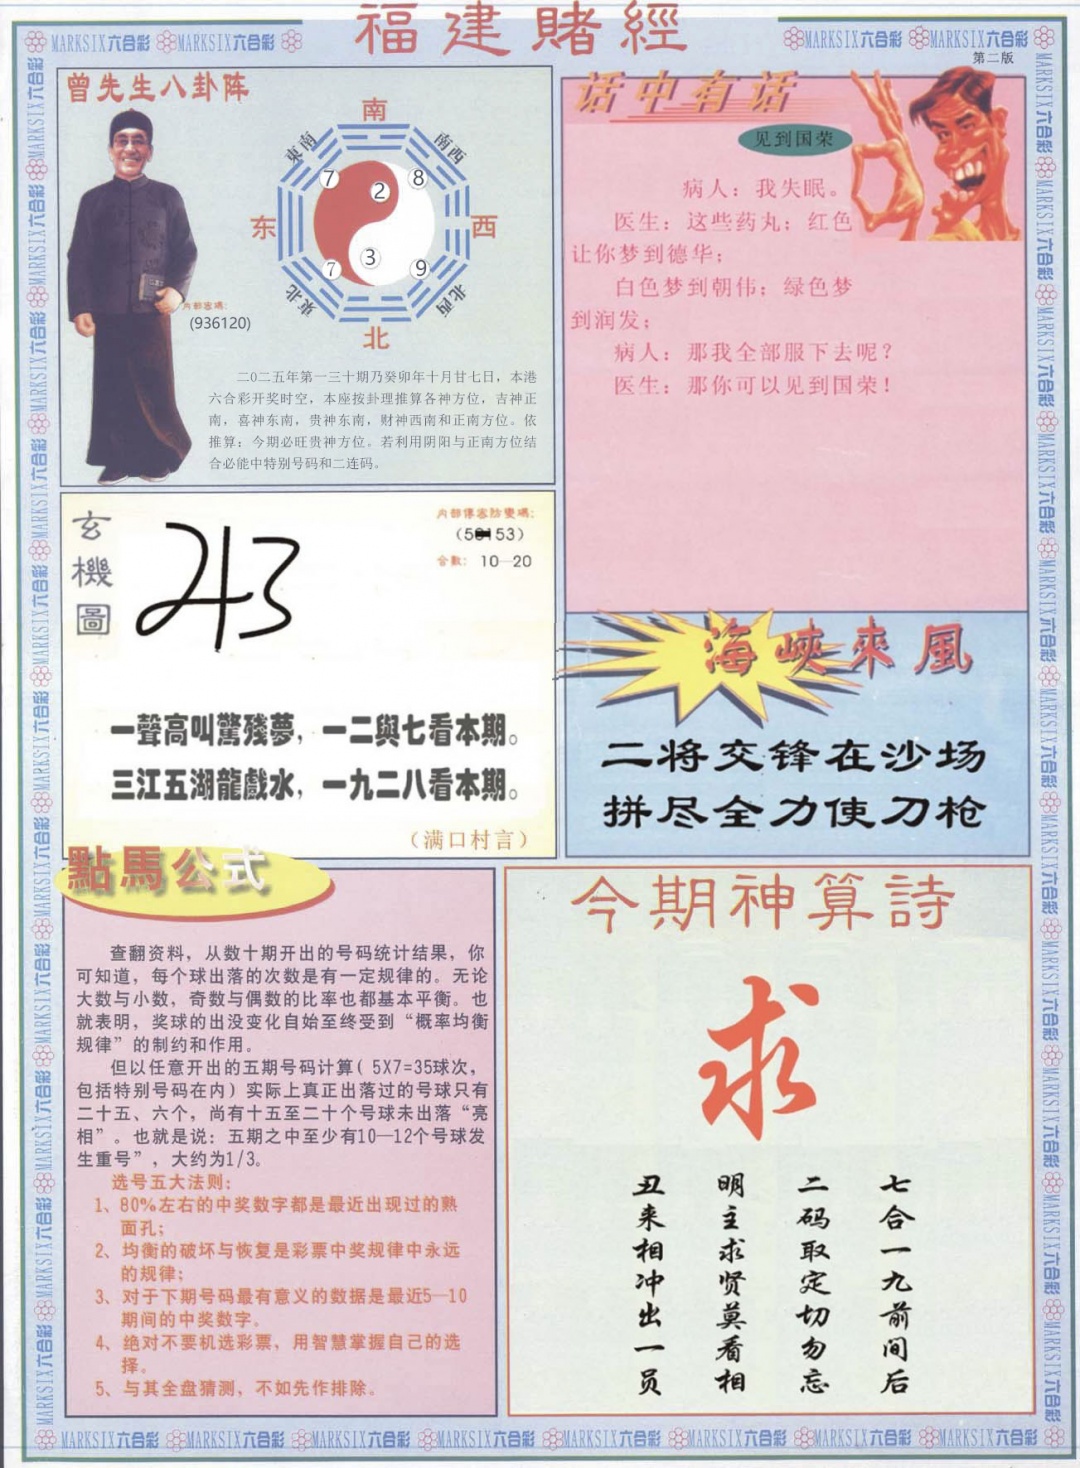 福建賭經
MARKSIX六合彩 MARKSIX六合彩 MARKSIX六合彩 MARKSIX六合彩
第二版
曾先生八卦阵
南
東南
南西
7
2
8
东
西
3
7
9
東北
北西
北
内部密碼:
(936120)
二〇二五年第一三十期乃癸卯年十月廿七日，本港
六合彩开奖时空，本座按卦理推算各神方位，吉神正
南，喜神东南，贵神东南，财神西南和正南方位。依
推算：今期必旺贵神方位。若利用阴阳与正南方位结
合必能中特别号码和二连码。
话中有话
见到国荣
病人：我失眠。
医生：这些药丸；红色
让你梦到德华；
白色梦到朝伟；绿色梦
到润发；
病人：那我全部服下去呢？
医生：那你可以见到国荣！
玄機圖
243
内部傳密防變碼:
合數: 10—20
一聲高叫驚殘夢，一二與七看本期。
三江五湖龍戲水，一九二八看本期。
（满口村言）
海峽來風
二将交锋在沙场
拼尽全力使刀枪
點馬公式
查翻资料，从数十期开出的号码统计结果，你
可知道，每个球出落的次数是有一定规律的。无论
大数与小数，奇数与偶数的比率也都基本平衡。也
就表明，奖球的出没变化自始至终受到“概率均衡
规律”的制约和作用。
但以任意开出的五期号码计算( 5X7=35球次，
包括特别号码在内）实际上真正出落过的号球只有
二十五、六个，尚有十五至二十个号球未出落“亮
相”。也就是说：五期之中至少有10—12个号球发
生重号”，大约为1/3。
选号五大法则:
1、80%左右的中奖数字都是最近出现过的熟
面孔;
2、均衡的破坏与恢复是彩票中奖规律中永远
的规律;
3、对于下期号码最有意义的数据是最近5—10
期间的中奖数字。
4、绝对不要机选彩票，用智慧掌握自己的选
择。
5、与其全盘猜测，不如先作排除。
今期神算詩
求
七合一九前间后
二码取定切勿忘
明主求贤莫看相
丑来相冲出一员
MARKSIX六合彩 MARKSIX六合彩 MARKSIX六合彩 MARKSIX六合彩 MARKSIX六合彩 MARKSIX六合彩 MARKSIX六合彩 MARKSIX六合彩